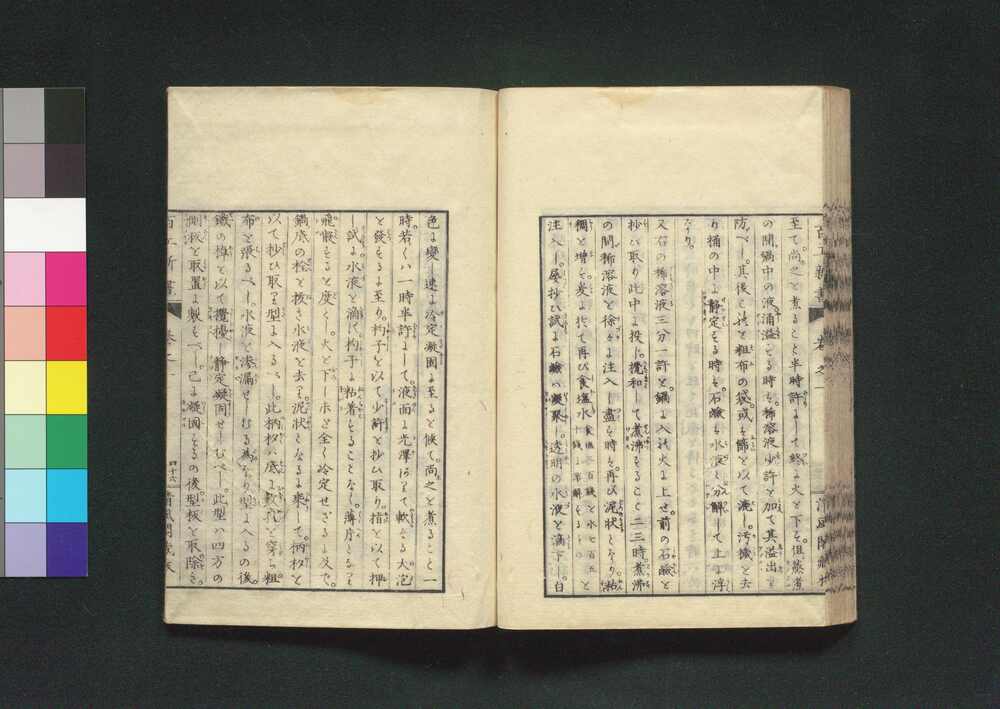 至て。尚之を煮ること半時許にして終に火を下す。但蒸煮
の間鍋中の液涌溢する時は。稀溶液少許を加て其溢出を
防べし。其後之を粗布の袋或は篩を以て漉し。汚穢を去
り桶の中に静定する時は。石鹸は水液と分解して上に浮
なり。
又右の稀溶液三分一許を。鍋に入れ火に上せ。前の石鹸を
抄ひ取り此中に投し。攪和して煮沸すること二三時。煮沸
の間稀溶液を徐々に注入し盡す時は再び泥状となり。粘
稠を増す。爰に於て再び食塩水を
注入し。屡抄ひ試に石鹸は凝聚し。透明の水液を滴下し。白
色に變し速に冷定凝固に至るを候て。尚之を煮ること一
時若くハ一時半許にして。液面に光澤ありて軟なる大泡
を發するに至り。杓子を以て少許を抄ひ取り。指を以て押
し試に。水液を滴さ杓子に粘着することなし。薄片となりて
飛散するを度とし。火を下し未た全く冷定せざるに及て。
鍋底の栓を抜き水液を去る。泥状となるに來て柄杓を
以て抄ひ取り型に入るべし。此柄杓ハ底に數孔を穿ち粗
布を張るべし。水液を滲漏せしむる為なり型に入るの後。
鐵の棹を以て攪擾し静定凝固せしむべし。此型ハ四方の
側板を取置に製すべし。已に凝固するの後型板を取除き。
百工新書
巻之一
四十六